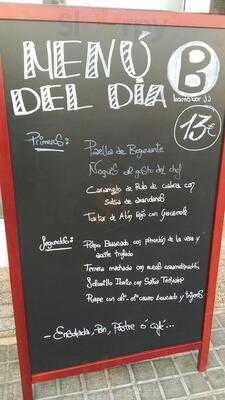 MENÚ
DEL DÍA
B
barnabar JJ
13€
Primeros:
Paella de Bogavante
Ñoquis al gusto del chef
Caramelo de Rabo de con
salsa de arandanos
Tartar de Atún Rojo con Guacamole
Segundos:
Pulpo Braseado con pimentón de la vera y
aceite trufado
Ternera mechada con nueces caramelizadas
Solomillo Iberico con Salsa Teriyaki
Rape con all-oli casero y
- Ensalada, Pan, Postre ó café...